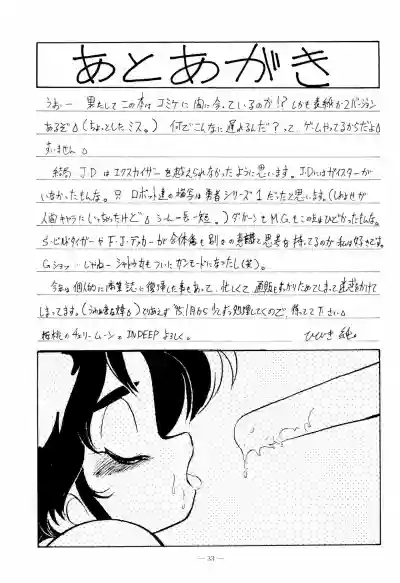 あとあがき
うおー 果たしてこの本はコミケに間に合っているのか!? しかも表紙が2バージョン
あるぞ。(ちょっとしたミス。) 何でこんなに遅れるんだ?って ゲームやってるからだよ。
すいません。
結局 J.Dはエクスカイザーを越えられなかったように思います。J.Dにはガイスターが
いなかったもんな。ロボット達の描写は勇者シリーズ1だったと思います。(しわよせが
人間キャラにいっちゃったけど。) ダ・ガーンも M.Gもこの点はひどかったもんな。
S・ビルドタイガーや F・J・デッカーが合体後も別々の意識と思考を持ってるのが私は好きです。
Gショッ…じゃねーシャドウ丸もついにガンモードになったし(笑)。
今年は個人的に商業誌に復帰した事もあって、忙しくて 通販もおわりためてしまって迷惑をかけて
しまってます。 とりあえず '95 1月から 処理していくので、待ってて下さい。
のチェリームーン。INDEEPよろしく。 ひびき 純。
— 33 —